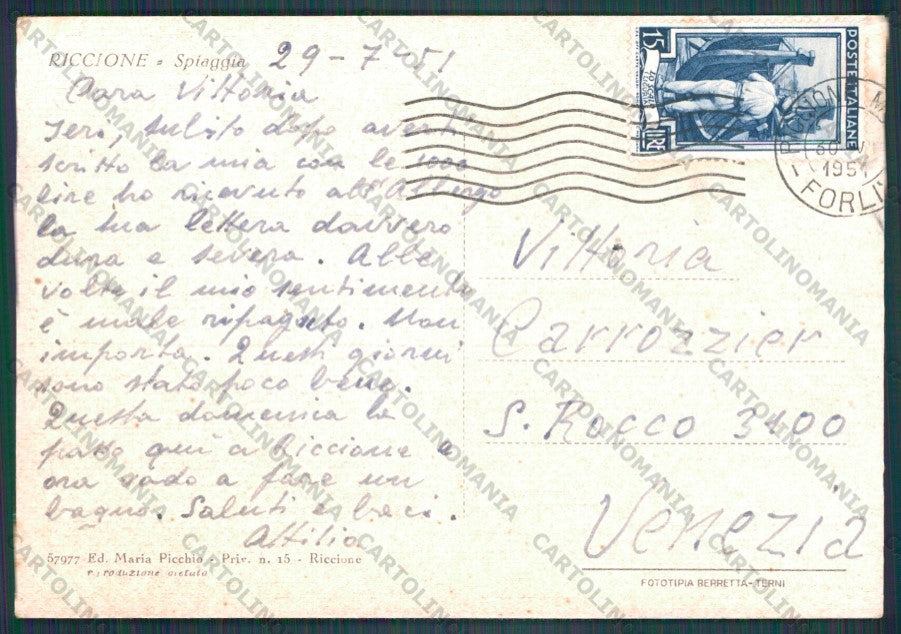 RICCIONE - Spiaggia 29-7-51
Cara Vittoria
Ieri, subito dopo averti
scritto la mia con le
ho ricevuto all'Albergo
la tua lettera davvero
dura e severa. Alle
volte il mio sentimento
è male ripagato. Non
importa. Questi giorni
sono stato poco bene.
Questa domenica la
passo qui a Riccione e
ora vado a fare un
bagno. Saluti e baci.
Attilio
57977 Ed. Maria Picchio - Priv. n. 15 - Riccione
riproduzione vietata
POSTE ITALIANE
15
LIRE
30
1951
FORLI
Vittoria
Carrozzier
S. Rocco 3100
Venezia
FOTOTIPIA BERRETTA - TERNI
CARTOLINOMANIA